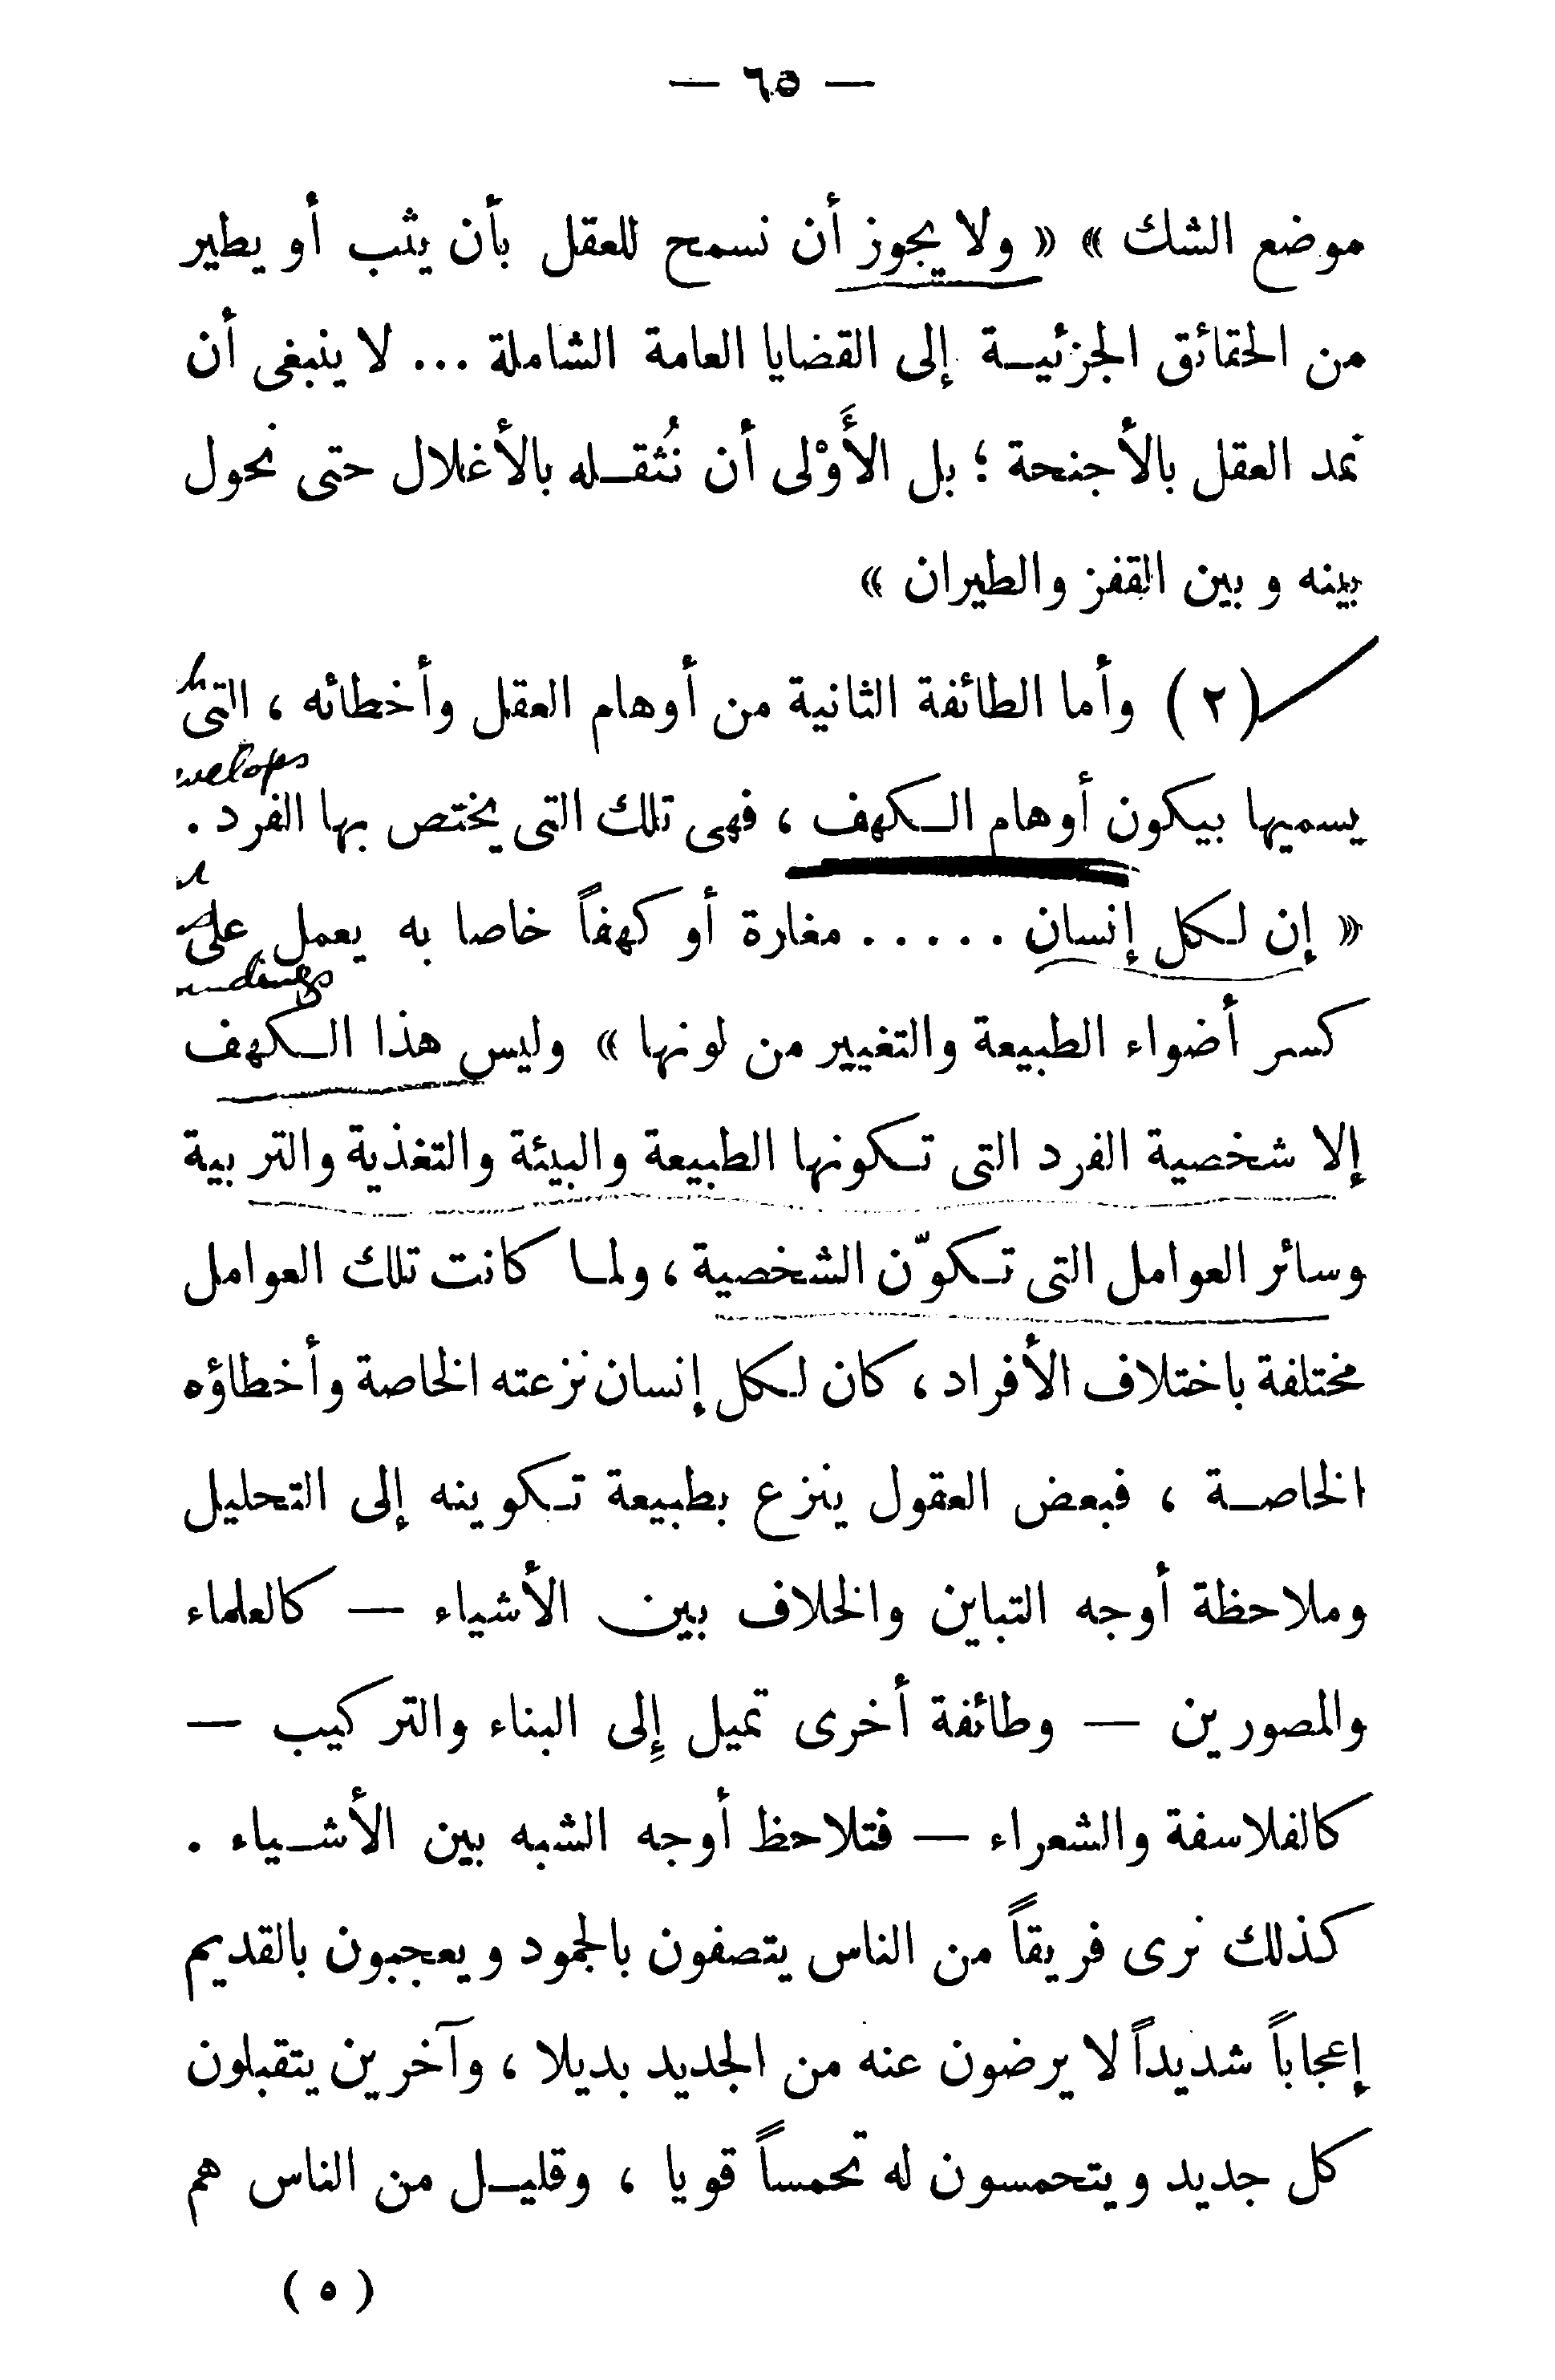 — ٦٥ —
موضع الشك » « ولا يجوز أن نسمح للعقل بأن يثب أو يطير
من الحقائق الجزئيـة إلى القضايا العامة الشاملة ... لا ينبغى أن
نمد العقل بالأجنحة ؛ بل الأَوْلى أن نُثقـله بالأغلال حتى نحول
بينه وبين القفز والطيران »
(٢) وأما الطائفة الثانية من أوهام العقل وأخطائه ، التى
velops
يسميها بيكون أوهام الـكهف ، فهى تلك التى يختص بها الفرد .
« إن لـكل إنسان ..... مغارة أو كهفاً خاصا به يعمل على
كسر أضواء الطبيعة والتغيير من لونها » وليس هذا الـكهف
إلا شخصية الفرد التى تـكونها الطبيعة والبيئة والتغذية والتربية
وسائر العوامل التى تـكوّن الشخصية ، ولمـا كانت تلك العوامل
مختلفة باختلاف الأفراد ، كان لـكل إنسان نزعته الخاصة وأخطاؤه
الخاصـة ، فبعض العقول ينزع بطبيعة تـكوينه إلى التحليل
وملاحظة أوجه التباين والخلاف بين الأشياء — كالعلماء
والمصورين — وطائفة أخرى تميل إلى البناء والتركيب —
كالفلاسفة والشعراء — فتلاحظ أوجه الشبه بين الأشـياء .
كذلك نرى فريقاً من الناس يتصفون بالجمود ويعجبون بالقديم
إعجاباً شديداً لا يرضون عنه من الجديد بديلا ، وآخرين يتقبلون
كل جديد ويتحمسون له تحمساً قويا ، وقليـل من الناس هم
( ٥ )